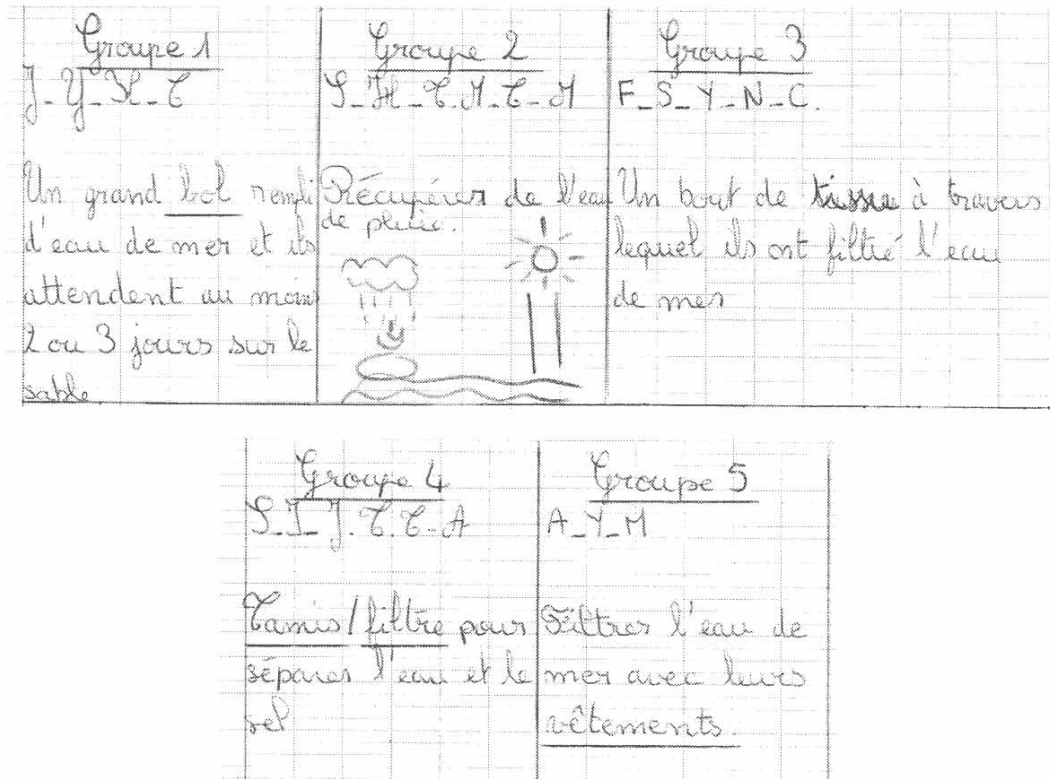 Groupe 1
J_Y_K_T
Un grand bol rempli
d'eau de mer et ils
attendent au moins
2 ou 3 jours sur le
sable
Groupe 2
S_H_T.M_T_M
Récupérer de l'eau
de pluie.
Groupe 3
F_S_Y_N_C.
Un bout de tissu à travers
lequel ils ont filtré l'eau
de mer
Groupe 4
S_I_J.T.T_A
Tamis/filtre pour
séparer l'eau et le
sel
Groupe 5
A_Y_M
Filtrer l'eau de
mer avec leurs
vêtements.